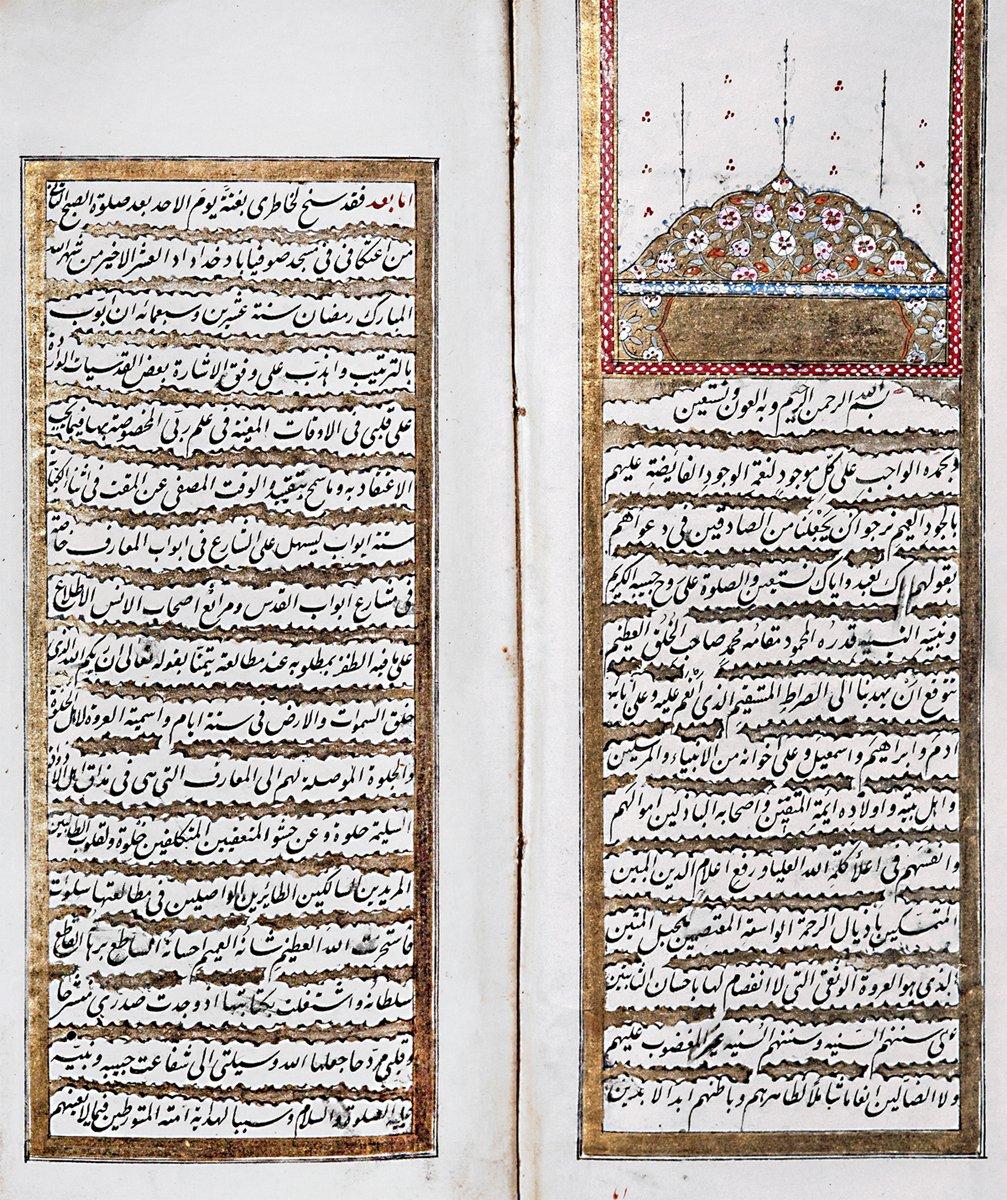 بسم الله الرحمن الرحيم وبه العون ونستعين
بحمده الواجب على كل موجود لنعمة الوجود الفايضة عليهم
بالجود العميم نرجو ان يجعلنا من الصادقين في دعواهم
بقولهم اياك نعبد واياك نستعين والصلوة على روح حبيبه الكريم
ونبيه قدره المحمود مقامه محمد صاحب الخلق العظيم
نتوقع ان يهدينا الى الصراط المستقيم الذي انعم عليه وعلى آبائه
ادم وابراهيم واسمعيل وعلى اخوانه من الانبياء والمرسلين
واهل بيته واولاده ائمة المتقين واصحابه الباذلين اموالهم
وانفسهم في اعلا كلمة الله العليا ورفع اعلام الدين المبين
المتمسكين باذيال الرحمة الواسعة المعتصمين بحبل المتين
الذي هو العروة الوثقى التي لا انفصام لها باحسان التابعين
سننهم السنيه وسننهم السنيه غير المغضوب عليهم
ولا الضالين انعاما شاملا لظاهرهم وباطنهم ابد الابدين
اما
اما بعد فقد سنح لخاطرى بغتة يوم الاحد بعد صلوة الصبح الثاني
من اعتكافى فى مسجد صوفياباد خداداد العشر الاخير من شهر الله
المبارك رمضان سنة عشرين وسبعمائه ان ابوب
بالترتيب واهذب على وفق الاشارة بعض القدسيات الواردة
على قلبى فى الاوقات المعينة فى علم ربى المخصوصة بها فيما يجب
الاعتقاد به وما سمح بتقييده الوقت المصفى عن المقت فى اثناء
ستة ابواب ليسهل على الشارع فى ابواب المعارف خاصة
فى مشارع ابواب القدس ومراتع اصحاب الانس الاطلاع
على ما فيه الظفر بمطلوبه عند مطالعته تيمنا بقوله تعالى ان ربكم الله الذى
خلق السموات والارض فى ستة ايام واسميته العروة لاهل الخلوة
والجلوة الموصلة لهم الى المعارف التى هى فى مذاق اهل
السليمة حلوة وعن حشو المتعقبين المتكلفين خلوة ولقلوب الطالبين
المريدين السالكين الطايرين الواصلين فى مطالعتها سلوات
فاستخرت الله العظيم شانه العميم احسانه الساطع برهانه القاطع
سلطانه واشتغلت بكتابتها اذ وجدت صدرى منشرحا
وقلبى مروحا جعلها الله وسيلتى الى شفاعت حبيبه ونبيه
عليه الصلوة والسلام وسببا لهداية امته المتورطين فيما لا يعنيهم